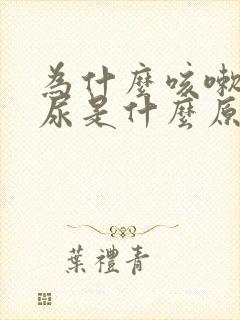 為什麼咳嗽
尿是什麼原
葉禮青